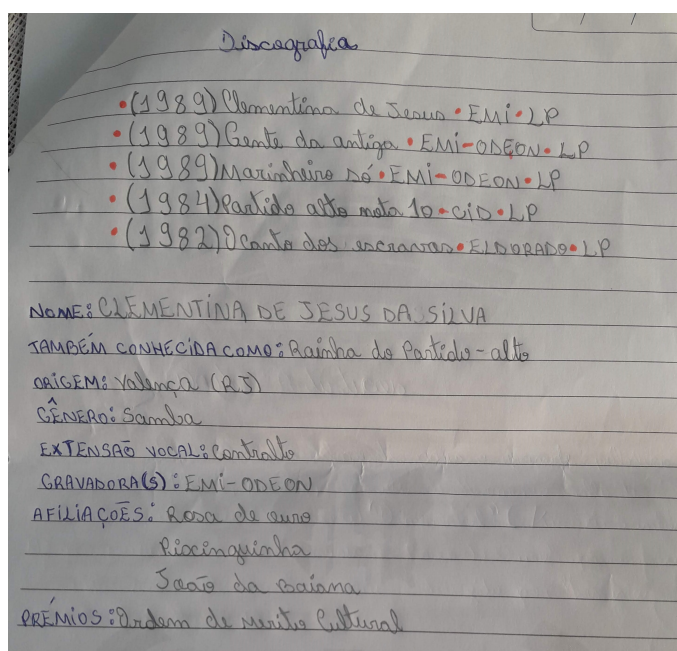 Discografia
•(1989) Clementina de Jesus • EMI • LP
•(1989) Gente da antiga • EMI-ODEON • LP
•(1989) Marinheiro só • EMI-ODEON • LP
•(1984) Partido alto nota 10 • CID • LP
•(1982) O canto dos escravos • ELDORADO • LP
NOME: CLEMENTINA DE JESUS DA SILVA
TAMBÉM CONHECIDA COMO: Rainha do Partido-alto
ORIGEM: Valença (RJ)
GÊNERO: Samba
EXTENSÃO VOCAL: Contralto
GRAVADORA(S): EMI-ODEON
AFILIAÇÕES: Rosa de ouro
Pixinguinha
João da Baiana
PRÊMIOS: Ordem de Merito Cultural